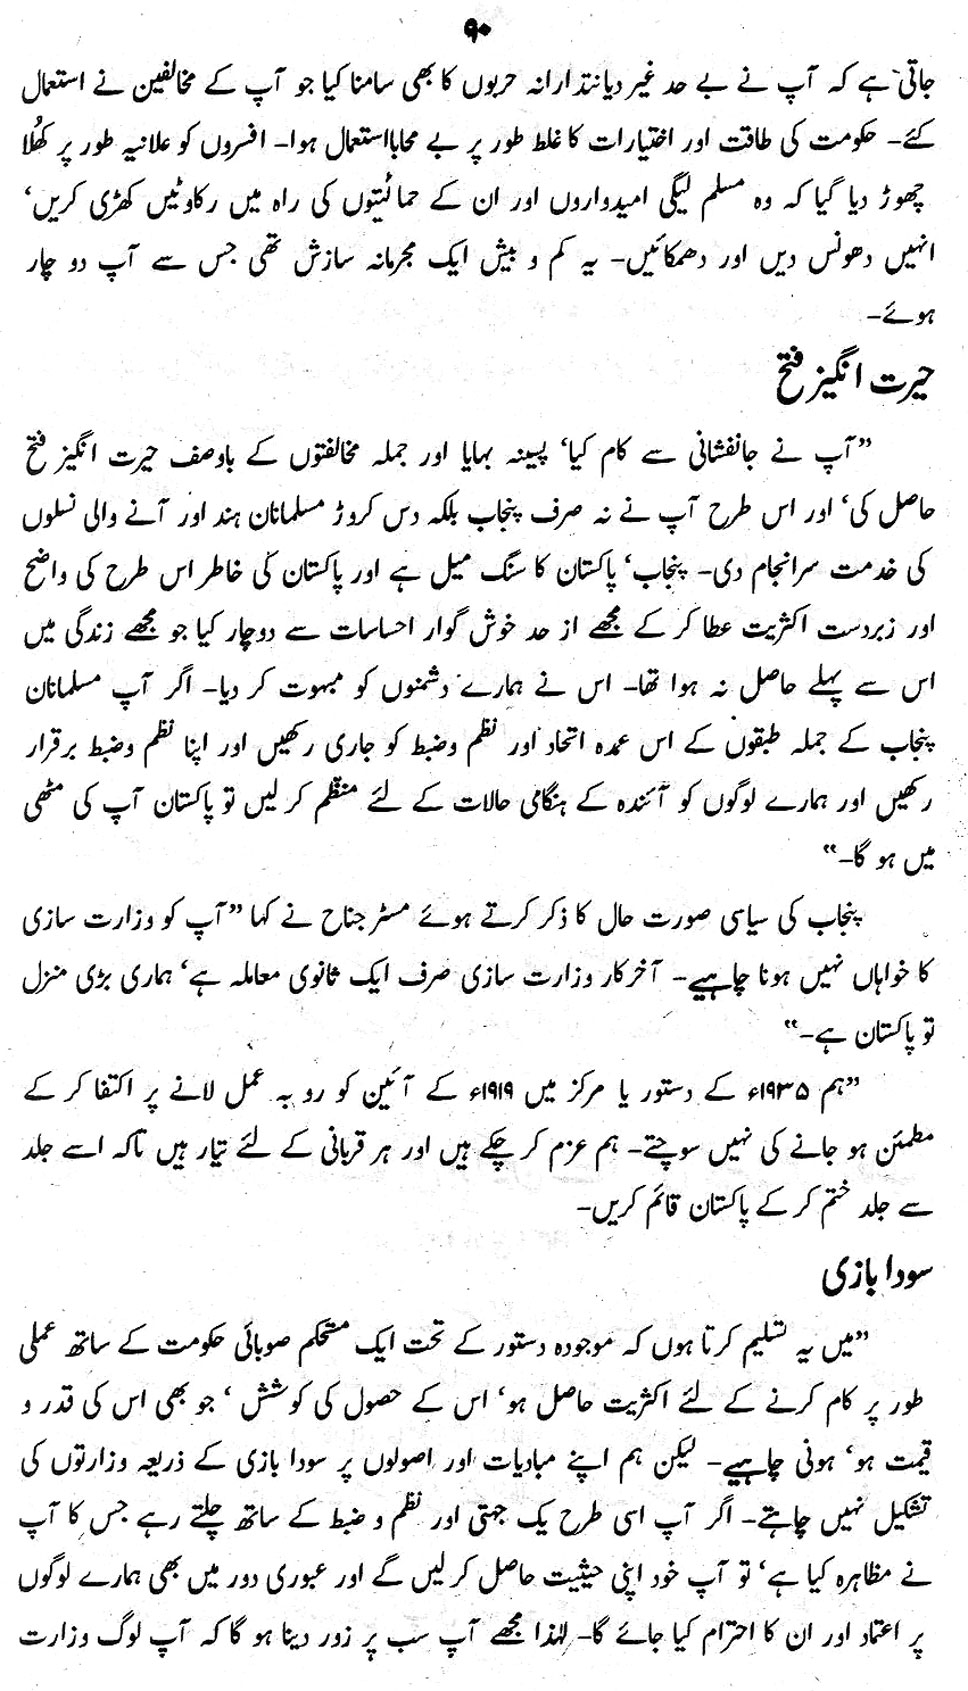 ۹۰
جاتی ہے کہ آپ نے بے حد غیر دیانتدارانہ حربوں کا بھی سامنا کیا جو آپ کے مخالفین نے استعمال
کئے۔ حکومت کی طاقت اور اختیارات کا غلط طور پر بے محابا استعمال ہوا۔ افسروں کو علانیہ طور پر کُھلا
چھوڑ دیا گیا کہ وہ مسلم لیگی امیدواروں اور ان کے حمائتیوں کی راہ میں رکاوٹیں کھڑی کریں‘
انہیں دھونس دیں اور دھمکائیں۔ یہ کم و بیش ایک مجرمانہ سازش تھی جس سے آپ دو چار
ہوئے۔
حیرت انگیز فتح
”آپ نے جانفشانی سے کام کیا‘ پسینہ بہایا اور جملہ مخالفتوں کے باوصف حیرت انگیز فتح
حاصل کی‘ اور اس طرح آپ نے نہ صرف پنجاب بلکہ دس کروڑ مسلمانان ہند اور آنے والی نسلوں
کی خدمت سرانجام دی۔ پنجاب‘ پاکستان کا سنگ میل ہے اور پاکستان کی خاطر اس طرح کی واضح
اور زبردست اکثریت عطا کر کے مجھے از حد خوش گوار احساسات سے دوچار کیا جو مجھے زندگی میں
اس سے پہلے حاصل نہ ہوا تھا۔ اس نے ہمارے دشمنوں کو مبہوت کر دیا۔ اگر آپ مسلمانان
پنجاب کے جملہ طبقوں کے اس عمدہ اتحاد اور نظم وضبط کو جاری رکھیں اور اپنا نظم وضبط برقرار
رکھیں اور ہمارے لوگوں کو آئندہ کے ہنگامی حالات کے لئے منظم کر لیں تو پاکستان آپ کی مٹھی
میں ہو گا۔“
پنجاب کی سیاسی صورت حال کا ذکر کرتے ہوئے مسٹر جناح نے کہا ”آپ کو وزارت سازی
کا خواہاں نہیں ہونا چاہیے۔ آخرکار وزارت سازی صرف ایک ثانوی معاملہ ہے‘ ہماری بڑی منزل
تو پاکستان ہے۔“
”ہم ۱۹۳۵ء کے دستور یا مرکز میں ۱۹۱۹ء کے آئین کو رو بہ عمل لانے پر اکتفا کر کے
مطمئن ہو جانے کی نہیں سوچتے۔ ہم عزم کر چکے ہیں اور ہر قربانی کے لئے تیار ہیں تاکہ اسے جلد
سے جلد ختم کر کے پاکستان قائم کریں۔
سودا بازی
”میں یہ تسلیم کرتا ہوں کہ موجودہ دستور کے تحت ایک مستحکم صوبائی حکومت کے ساتھ عملی
طور پر کام کرنے کے لئے اکثریت حاصل ہو‘ اس کے حصول کی کوشش ‘ جو بھی اس کی قدر و
قیمت ہو‘ ہونی چاہیے۔ لیکن ہم اپنے مبادیات اور اصولوں پر سودا بازی کے ذریعہ وزارتوں کی
تشکیل نہیں چاہتے۔ اگر آپ اسی طرح یک جہتی اور نظم و ضبط کے ساتھ چلتے رہے جس کا آپ
نے مظاہرہ کیا ہے‘ تو آپ خود اپنی حیثیت حاصل کر لیں گے اور عبوری دور میں بھی ہمارے لوگوں
پر اعتماد اور ان کا احترام کیا جائے گا۔ لہٰذا مجھے آپ سب پر زور دینا ہو گا کہ آپ لوگ وزارت